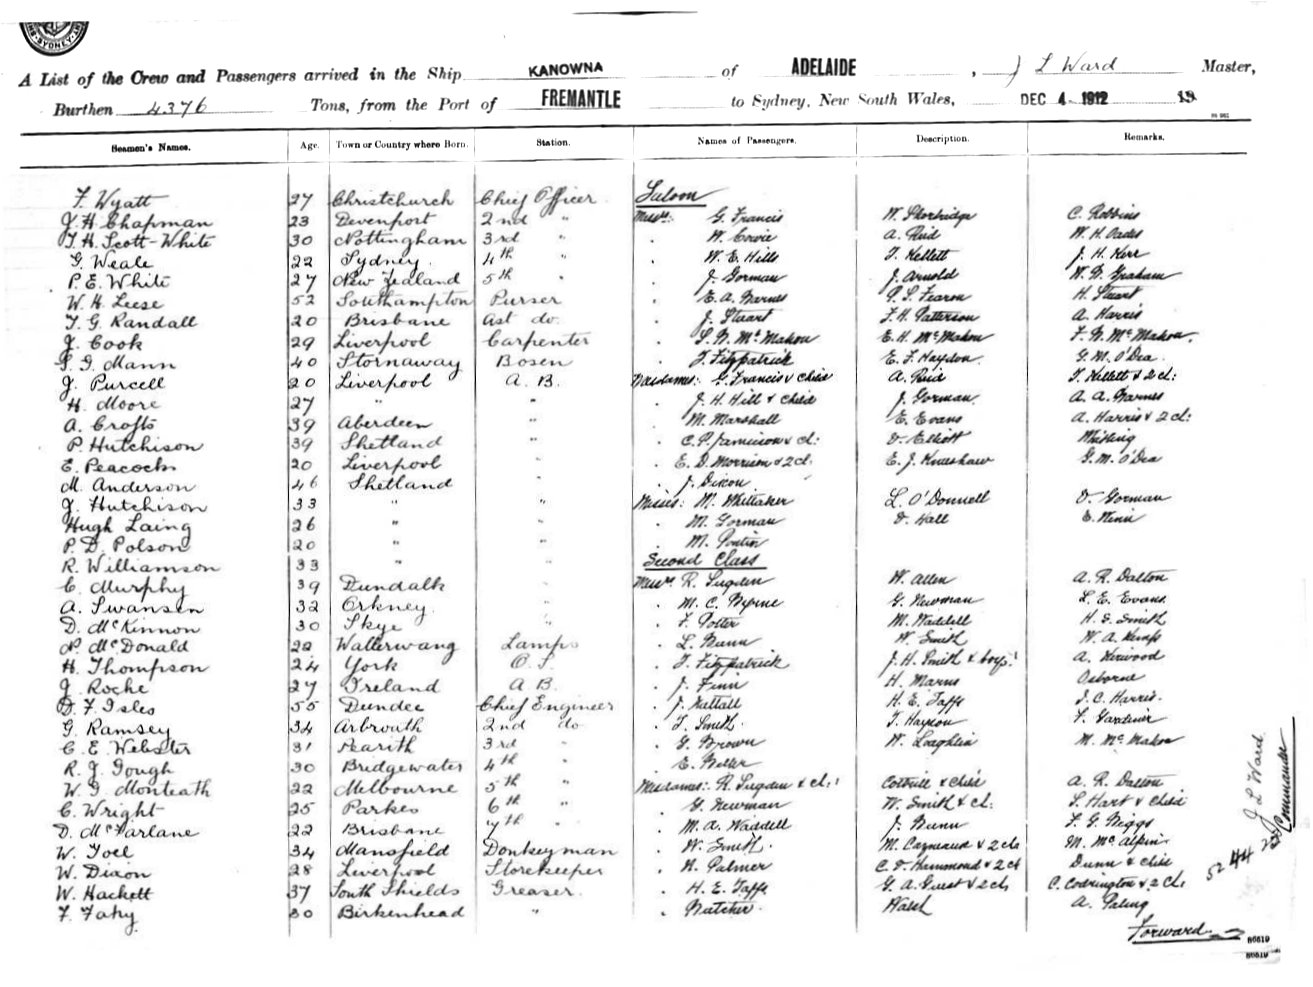 SYDNEY
A List of the Crew and Passengers arrived in the Ship KANOWNA of ADELAIDE, J L Ward Master,
Burthen 4376 Tons, from the Port of FREMANTLE to Sydney, New South Wales, DEC 4 1912 19
Seamen's Names. Age. Town or Country where Born. Station. Names of Passengers. Description. Remarks.
Saloon
F. Wyatt 27 Christchurch Chief Officer
J. H. Chapman 23 Devenport 2nd " Messrs: G. Francis W. Storbridge C. Robbins
T. H. Scott-White 30 Nottingham 3rd " W. Cowie A. Reid W. H. Oades
G. Weale 22 Sydney 4th " W. E. Hills T. Kellett J. H. Kerr
P. E. White 27 New Zealand 5th " J. Gorman J. Arnold W. W. Graham
W. H. Leese 52 Southampton Purser E. A. Barnes P. S. Fearon H. Stuart
T. G. Randall 20 Brisbane Ast do. J. Stuart F. H. Patterson A. Harris
J. Cook 29 Liverpool Carpenter S. W. McMahon E. H. McMahon F. W. McMahon
Mann 40 Stornaway Bosen T. Fitzpatrick E. F. Haydon G. M. O'Dea
J. Purcell 20 Liverpool A. B. Mesdames: G. Francis & Child A. Reid T. Kellett & 2 cl:
H. Moore 27 " " J. H. Hill & Child J. Gorman A. A. Barnes
A. Crofts 39 Aberdeen " M. Marshall E. Evans A. Harris & 2 cl:
P. Hutchison 39 Shetland " C. P. Jamieson & cl: D. Elliott
E. Peacock 20 Liverpool " E. D. Morrison & 2 cl. E. J. Knueshaw G. M. O'Dea
M. Anderson 46 Shetland J. Dixon
J. Hutchison 33 " " Misses: M. Whittaker L. O'Donnell D. Gorman
Hugh Laing 26 " " M. Gorman D. Hall E. Winn
P. D. Polson 20 " " M. Pontin
R. Williamson 33 " " Second Class
C. Murphy 39 Dundalk " Messrs R. Sugden W. Allen A. R. Dalton
A. Swansen 32 Orkney " M. C. Byrne G. Newman L. E. Evans
D. McKinnon 30 Skye " F. Potter M. Waddell H. G. Smith
McDonald 22 Wallerwang Lamps L. Bunn W. Smith W. A. Kemps
H. Thompson 24 York O. S. T. Fitzpatrick J. H. Smith & boys! A. Kirwood
J. Roche 27 Ireland A B. J. Finn H. Marns Osborne
D. F. Isles 55 Dundee Chief Engineer J. Nuttall H. E. Taffs J. C. Harris
G. Ramsey 34 Arbroath 2nd do T. Smith T. Hayson F. Gardiner
C. E. Webster 31 Penrith 3rd " G. Brown W. Loughlin M. McMahon
R. J. Gough 30 Bridgewater 4th " E. Beller
W. G. Monteath 22 Melbourne 5th " Mesdames: R. Sugden & cl: Cottrill & Child A. R. Dalton
C. Wright 25 Parkes 6th " G. Newman W. Smith & cl: S. Hart & Child
D. McFarlane 22 Brisbane 7th " M. A. Waddell J. Bunn F. G. Biggs
W. Toel 34 Mansfield Donkeyman W. Smith M. Cazneaux & 2 cls M. McAlpin
W. Dixon 28 Liverpool Storekeeper R. Palmer C. D. Hammond & 2 cl Dunn & child
W. Hackett 37 South Shields Greaser. H. E. Taffs G. A. Guest & 2 cls C. Codrington & 2 cl:
F. Fahy 30 Birkenhead " Butcher Walsh A. Paling
Forward
J L Ward
Commander
86619
86619